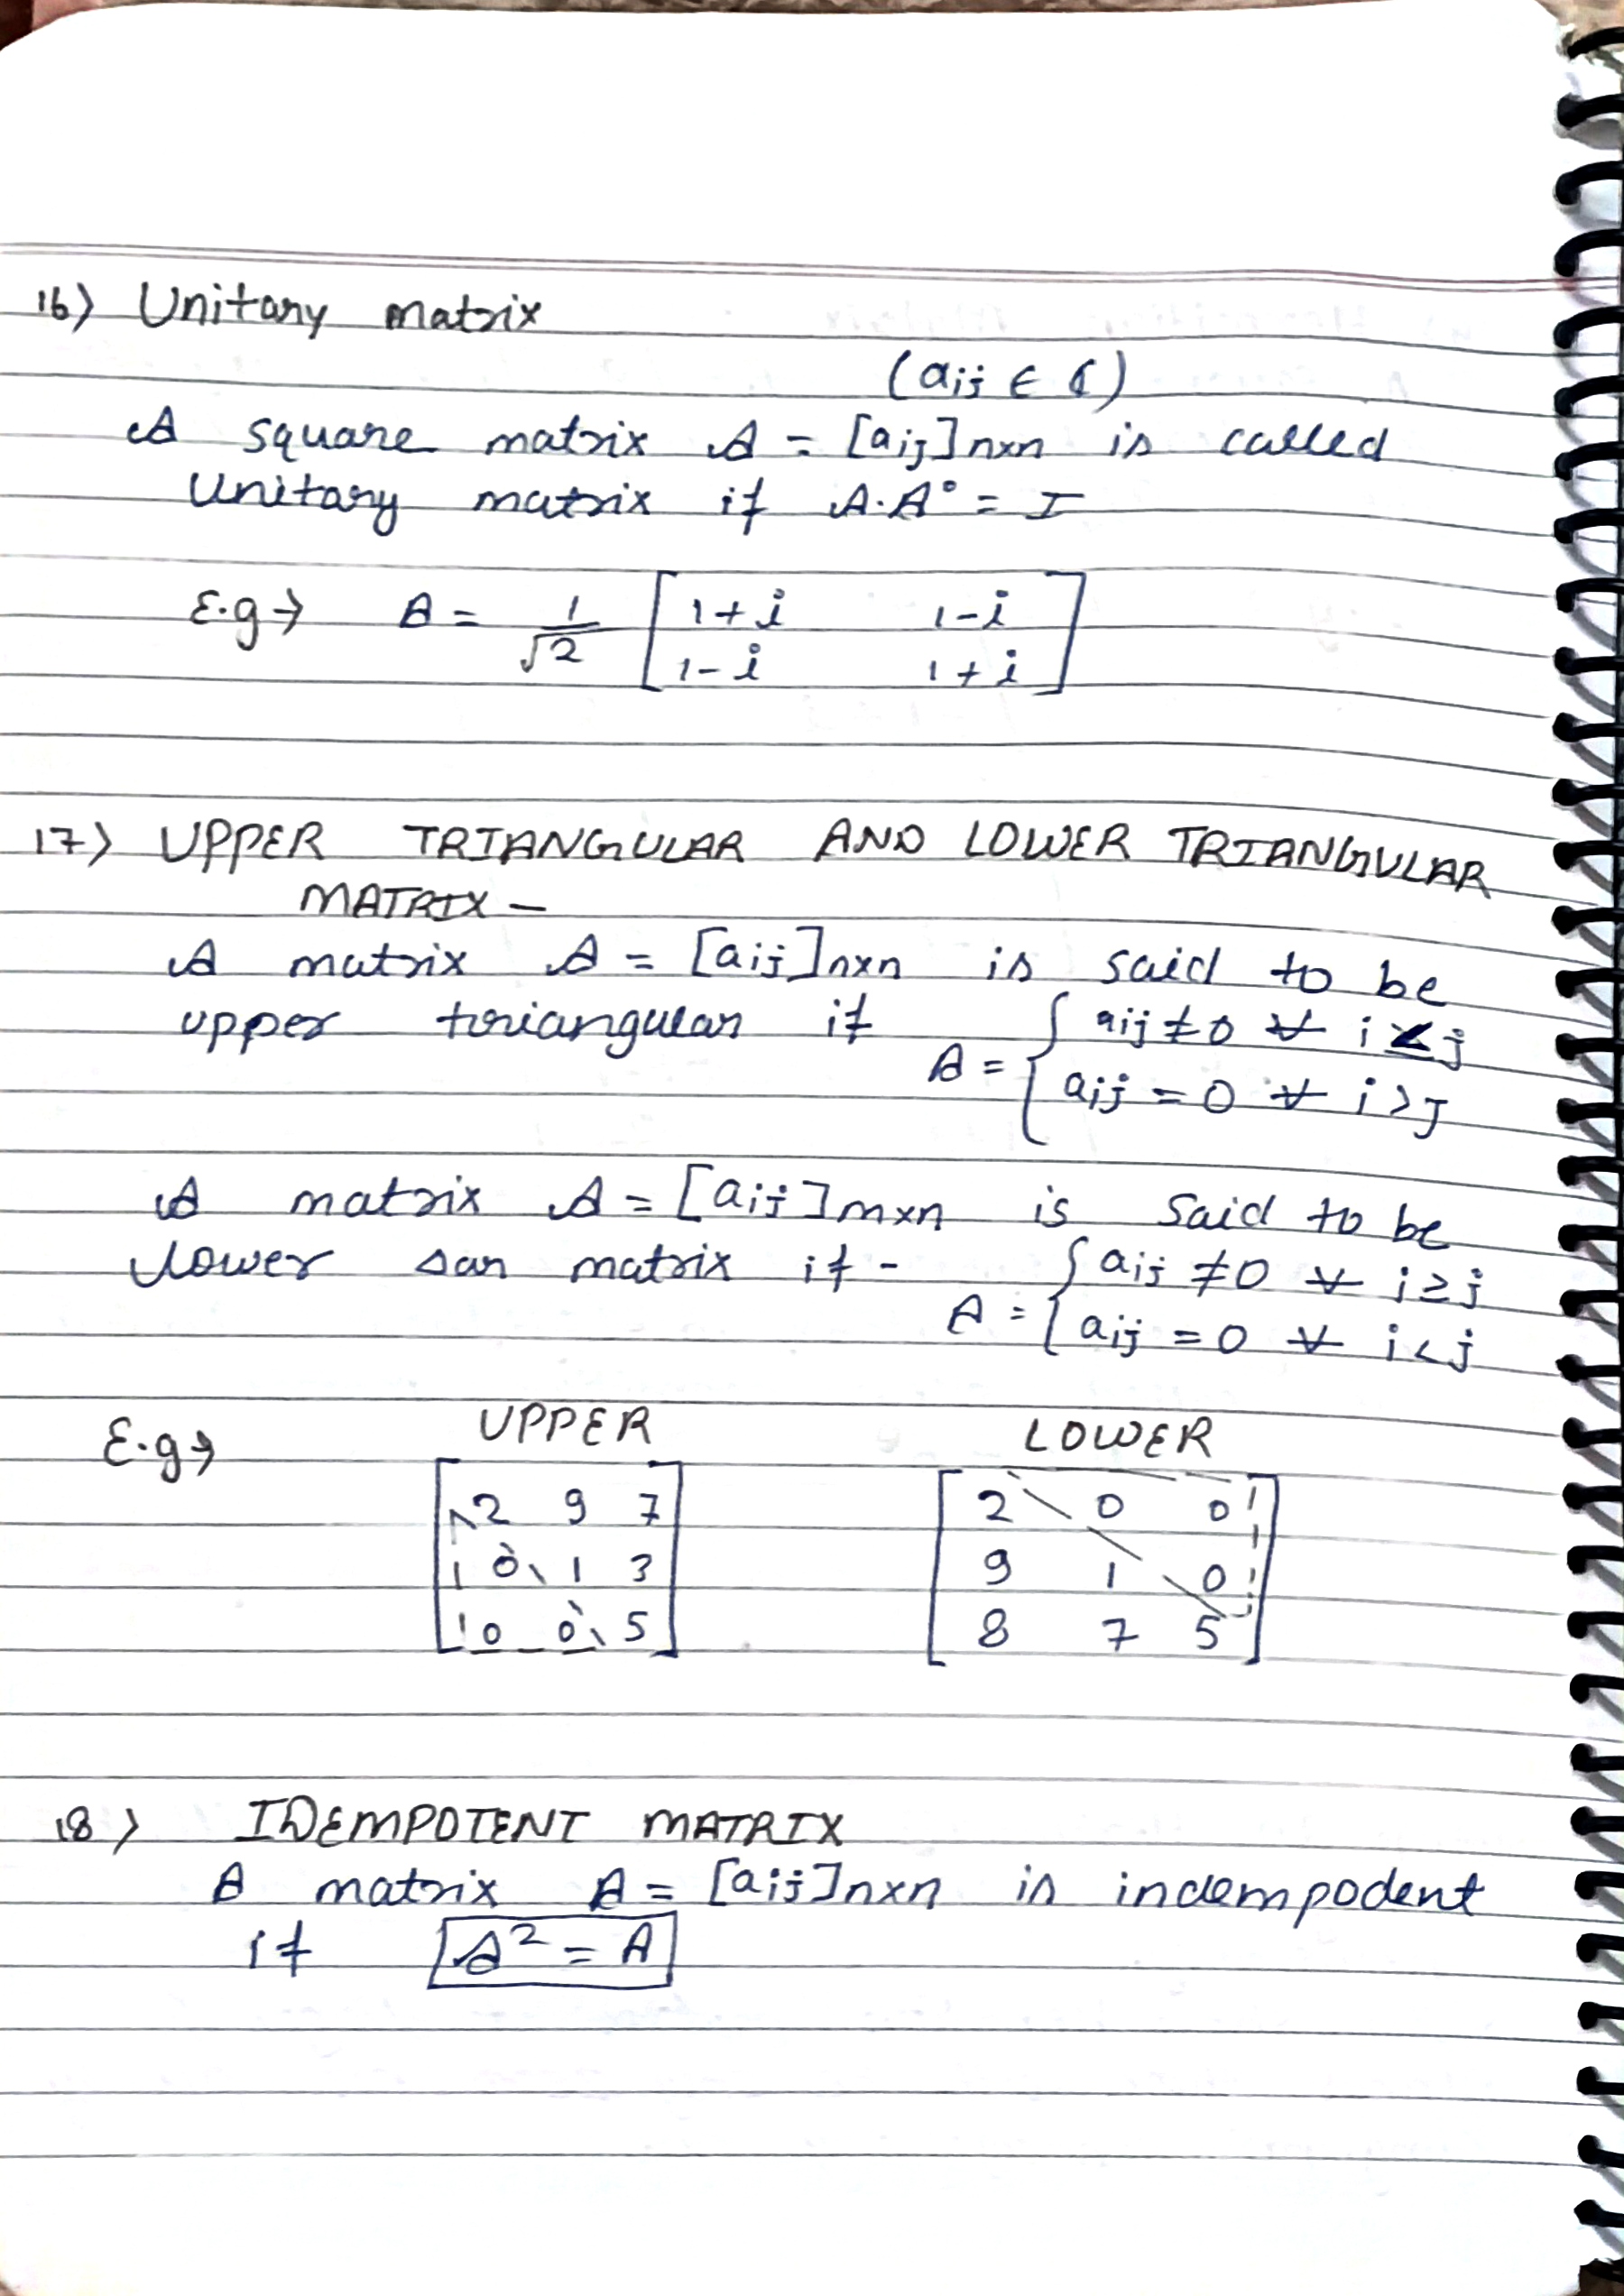 16) Unitary matrix
(aij ∈ ₵)
A square matrix A = [aij]nxn is called
Unitary matrix if A.A° = I
E.g → A = 1/√2 [1+i 1-i
1-i 1+i]
17) UPPER TRIANGULAR AND LOWER TRIANGULAR
MATRIX -
A matrix A = [aij]nxn is said to be
upper triangular if A = { aij ≠ 0 ∀ i ≤ j
aij = 0 ∀ i > j
A matrix A = [aij]mxn is said to be
lower sar matrix if - A = { aij ≠ 0 ∀ i ≥ j
aij = 0 ∀ i < j
E.g → UPPER LOWER
[2 9 7] [2 0 0]
[0 1 3] [9 1 0]
[0 0 5] [8 7 5]
18) IDEMPOTENT MATRIX
A matrix A = [aij]nxn is indempodent
if A² = A